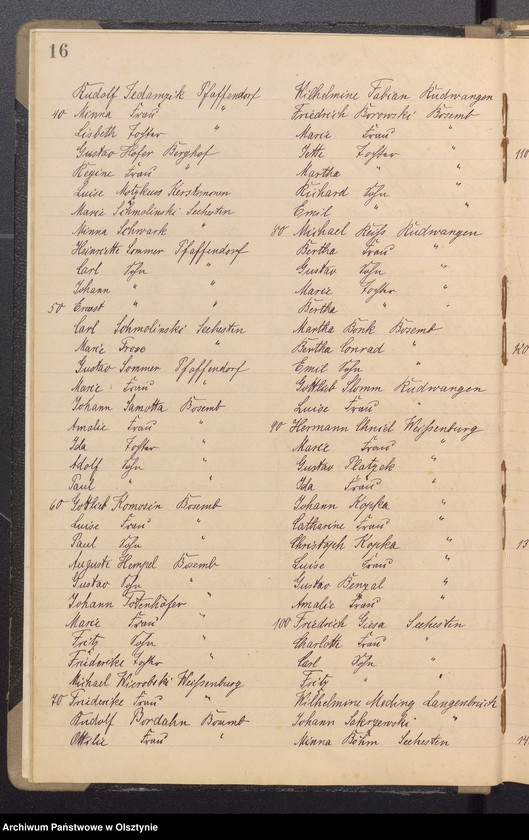 16
Rudolf Jedamzik Pfaffendorf
40 Minna Frau "
Lisbeth Tochter "
Gustav Höfer Berghof
Regine Frau "
Luise Motzkus
Marie Schmolinski Seehesten
Minna Schwark "
Heinriette Sommer Pfaffendorf
Carl Sohn "
Johann " "
50 Ernst " "
Carl Schmolinski Seehesten
Marie "
Gustav Sommer Pfaffendorf
Marie Frau "
Johann Samotta Bosemb
Amalie Frau "
Ida Tochter "
Adolf Sohn "
Paul " "
60 Gottlieb Komossin Bosemb
Luise Frau "
Paul Sohn "
Auguste Hempel Bosemb
Gustav Sohn "
Johann Totenhöfer "
Marie Frau "
Fritz Sohn "
Friederike Tochter "
Michael Wierobski Weißenburg
70 Friederike Frau "
Rudolf Bordahn Bosemb
Ottilie Frau "
Wilhelmine Fabian Rudwangen
Friedrich Borowski Bosemb
Marie Frau "
Jette Tochter "
Martha " "
Richard Sohn "
Emil " "
80 Michael Reiss Rudwangen
Bertha Frau "
Gustav Sohn "
Marie Tochter "
Bertha " "
Martha Bonk Bosemb
Bertha Conrad "
Emil Sohn "
Gottlieb Slomm Rudwangen
Luise Frau "
90 Hermann Chniel Weißenburg
Marie Frau "
Gustav Platzek "
Ida Frau "
Johann Kopka "
Catharine Frau "
Christoph Kopka "
Luise Frau "
Gustav Benzal "
Amalie Frau "
100 Friedrich Giesa Seehesten
Charlotte Frau "
Carl Sohn "
Fritz " "
Wilhelmine Meding Langenbrück
Johann Sakrzewski "
Minna Böhm Seehesten
110
120
13
14
Archiwum Państwowe w Olsztynie